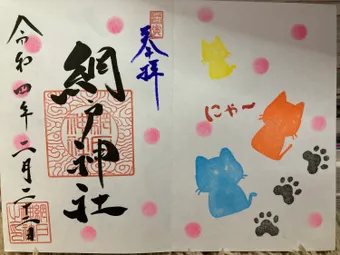 にゃ〜
奉拝
網戸神社
令和四年二月二十二日